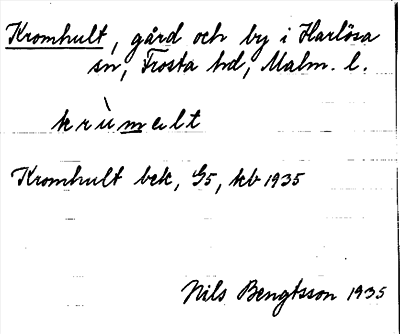 Kromhult, gård och by i Harlösa
sn, Frosta hd, Malm. l.
krùmelt
Kromhult bek, G5, kb 1935
Nils Bengtsson 1935